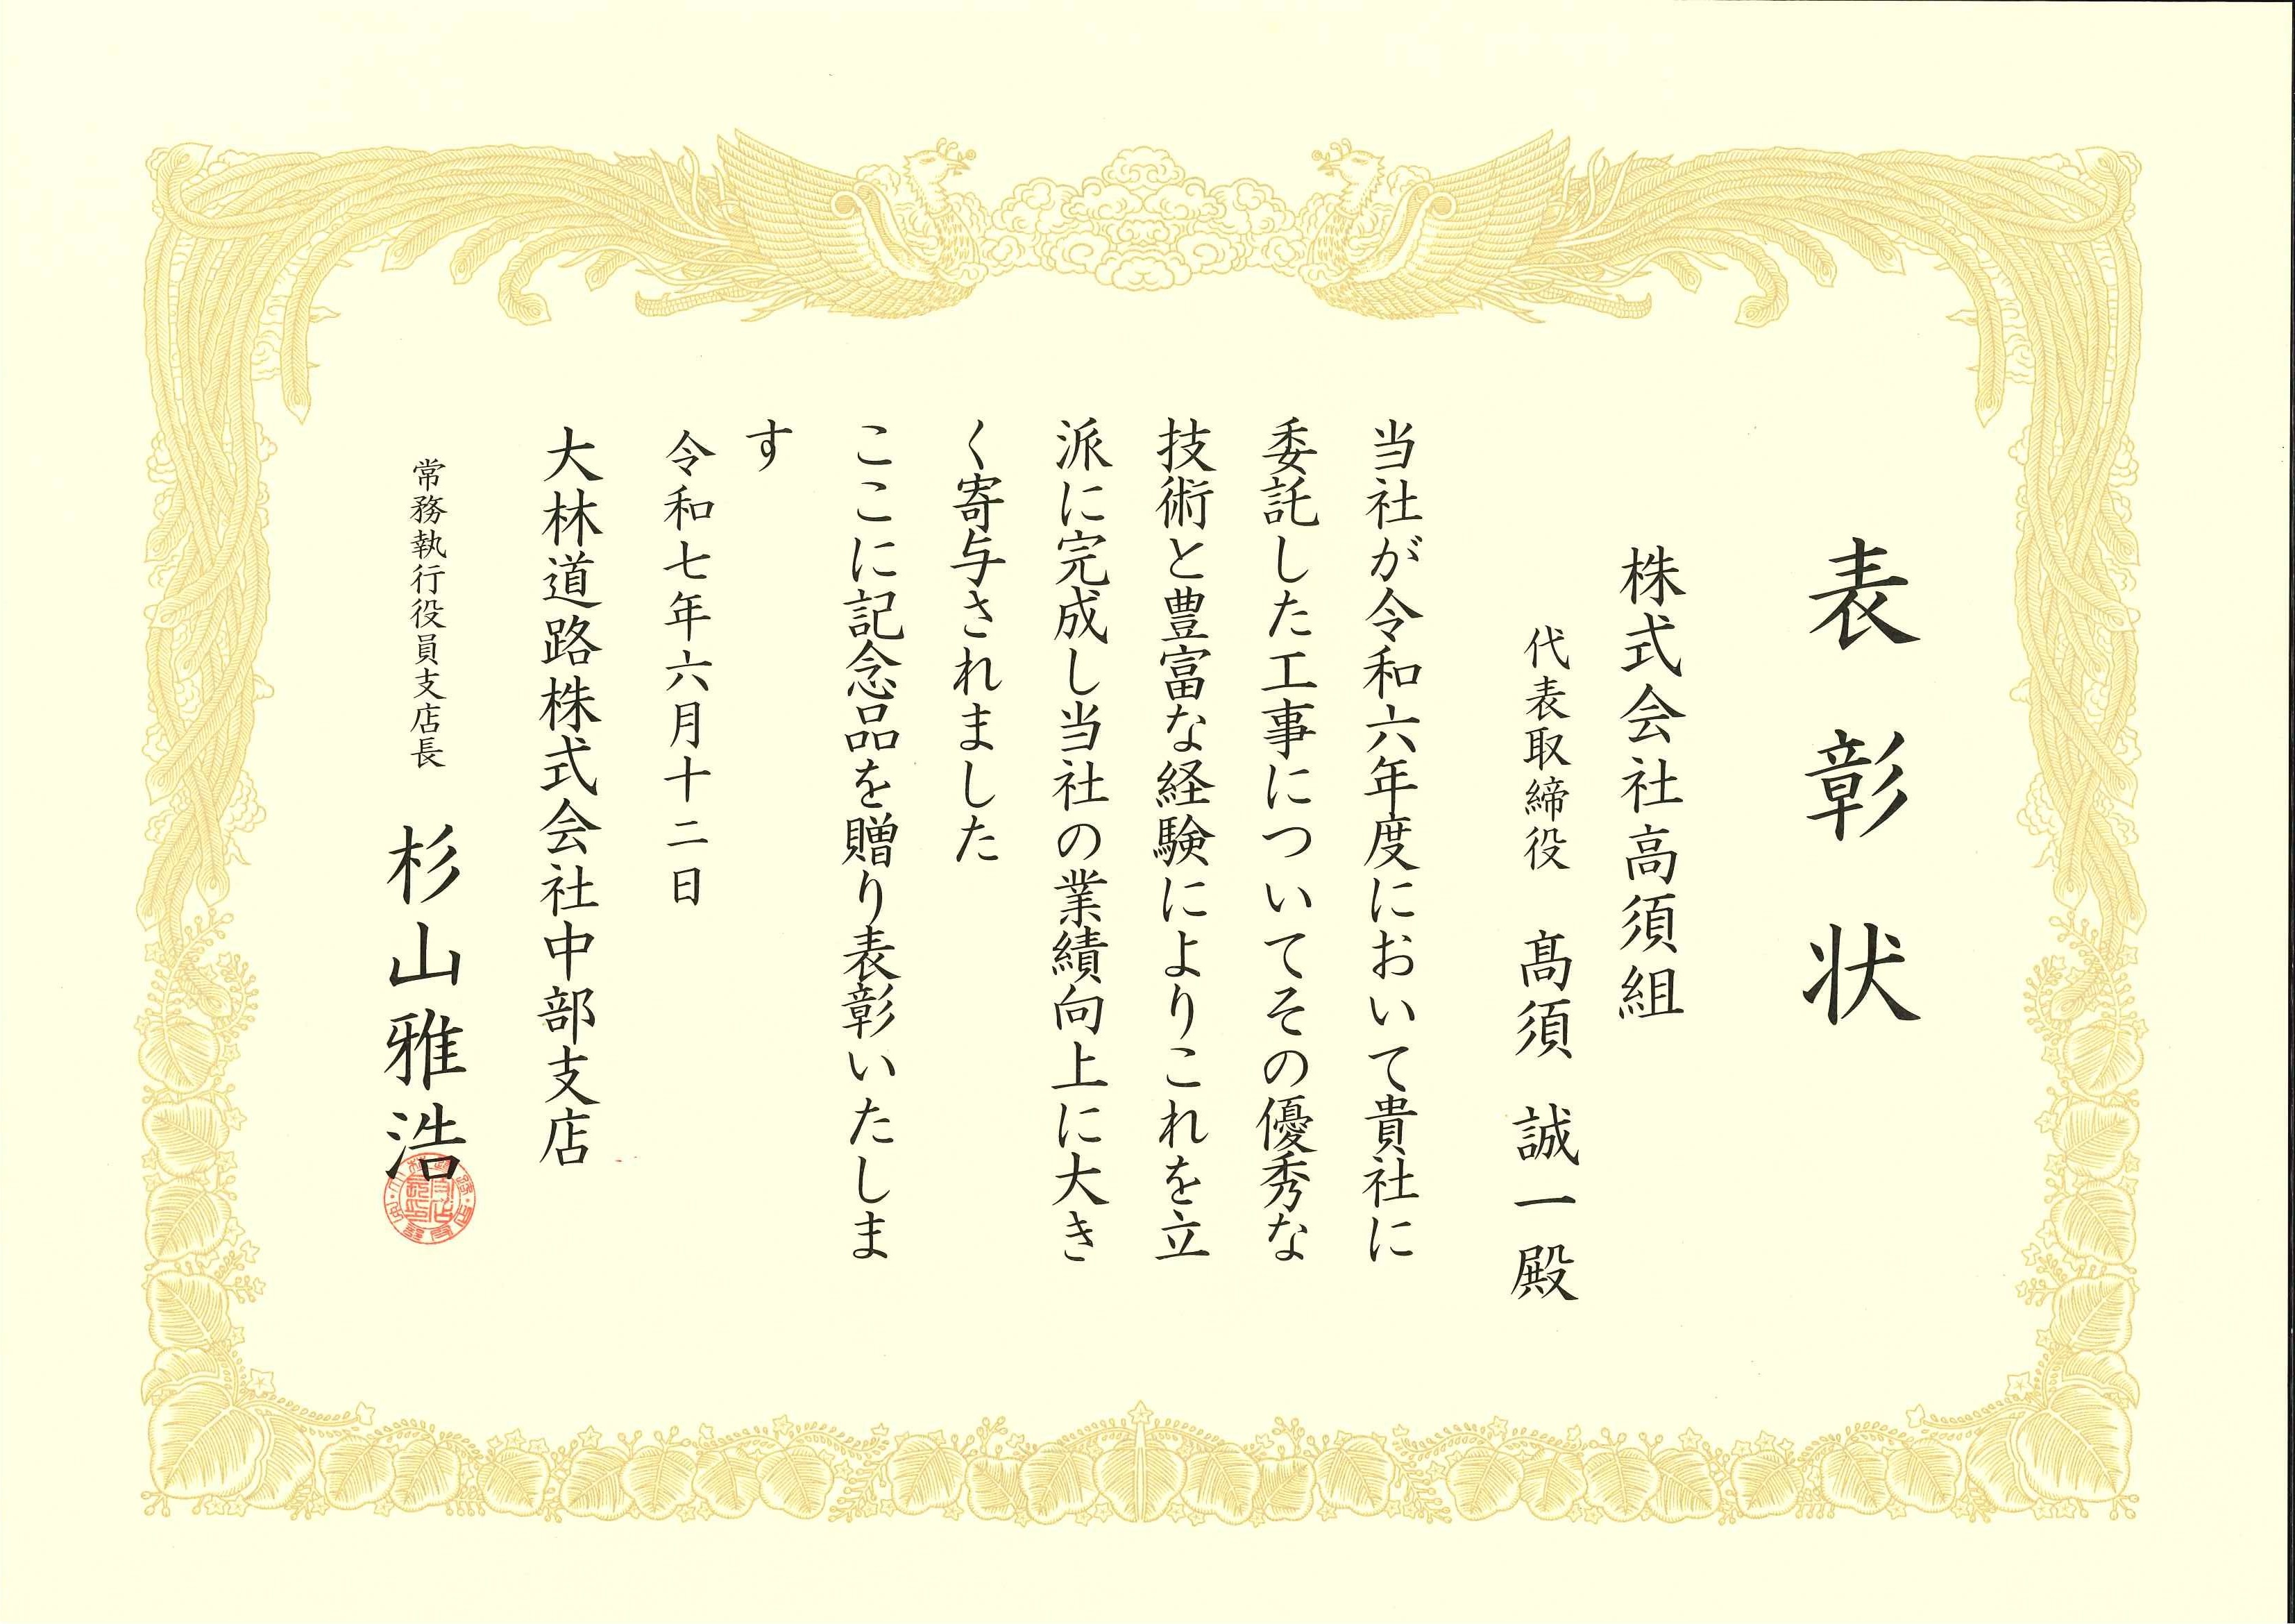 表彰状
株式会社高須組
代表取締役 髙須 誠一 殿
当社が令和六年度において貴社に
委託した工事についてその優秀な
技術と豊富な経験によりこれを立
派に完成し当社の業績向上に大き
く寄与されました
ここに記念品を贈り表彰いたしま
す
令和七年六月十二日
大林道路株式会社中部支店
常務執行役員支店長 杉山雅浩